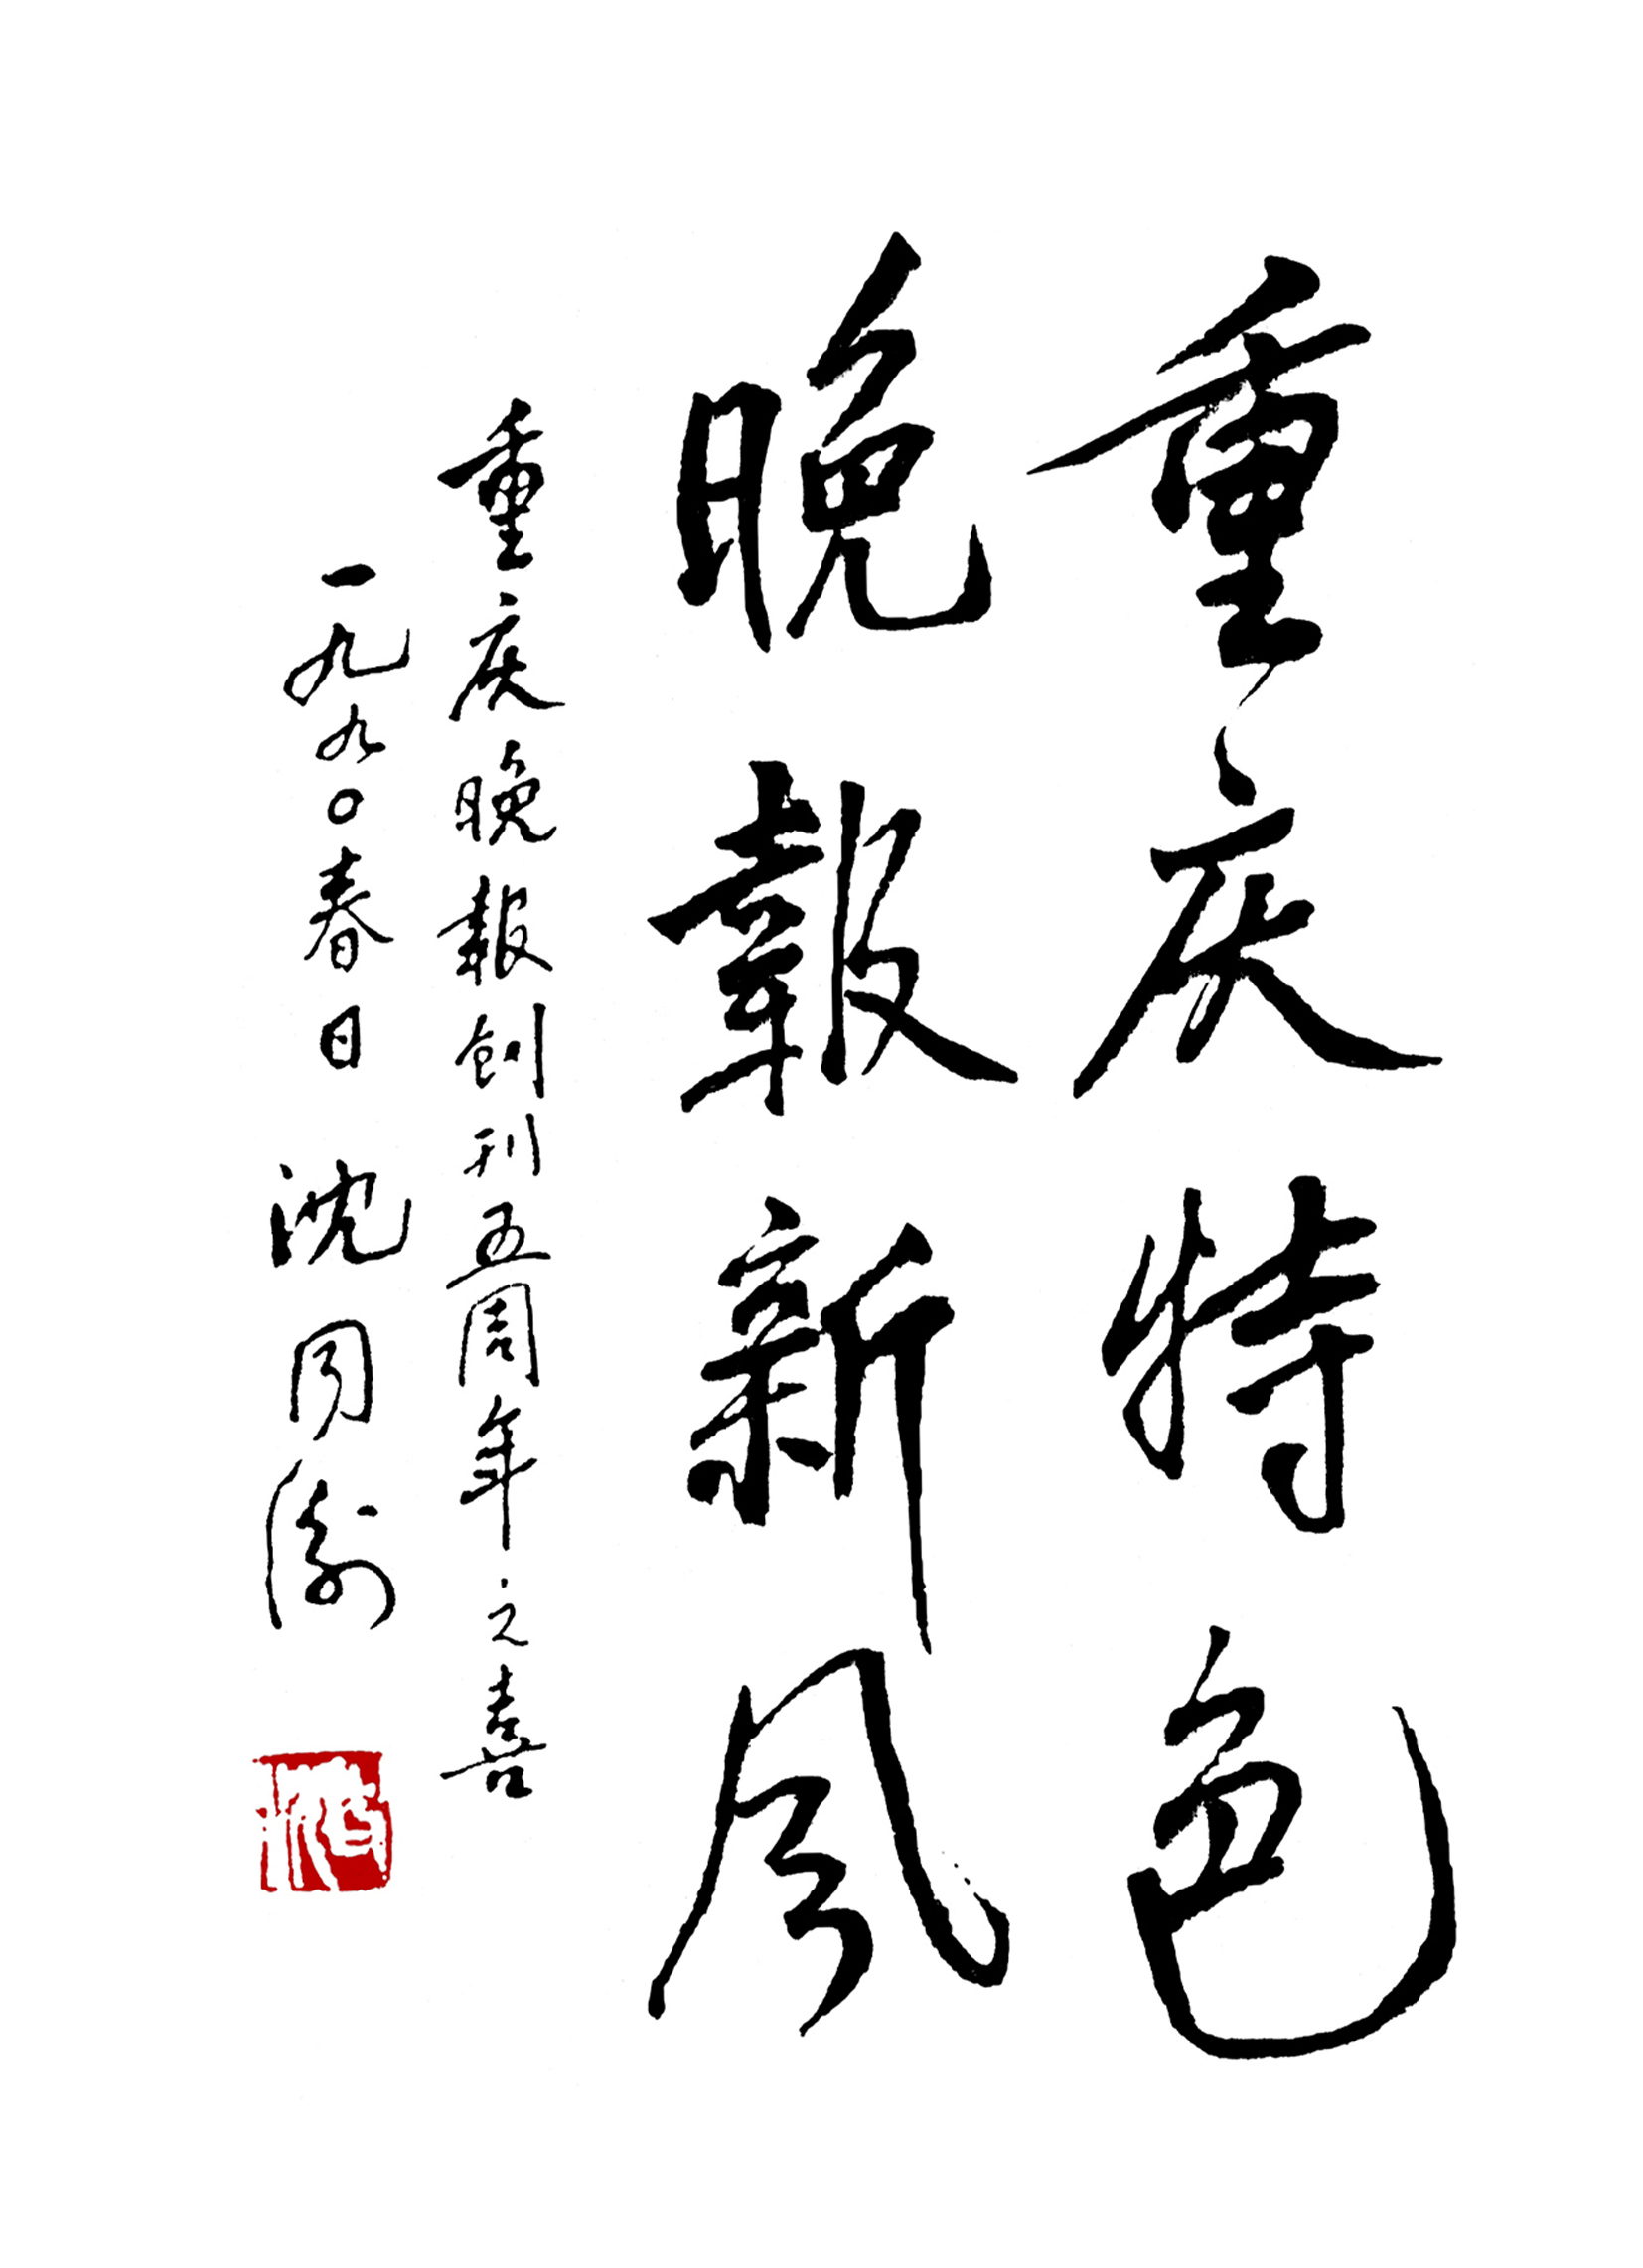 重庆特色
晚報新风
重庆晚報创刊五周年之喜
一九九〇春日 沈同衡